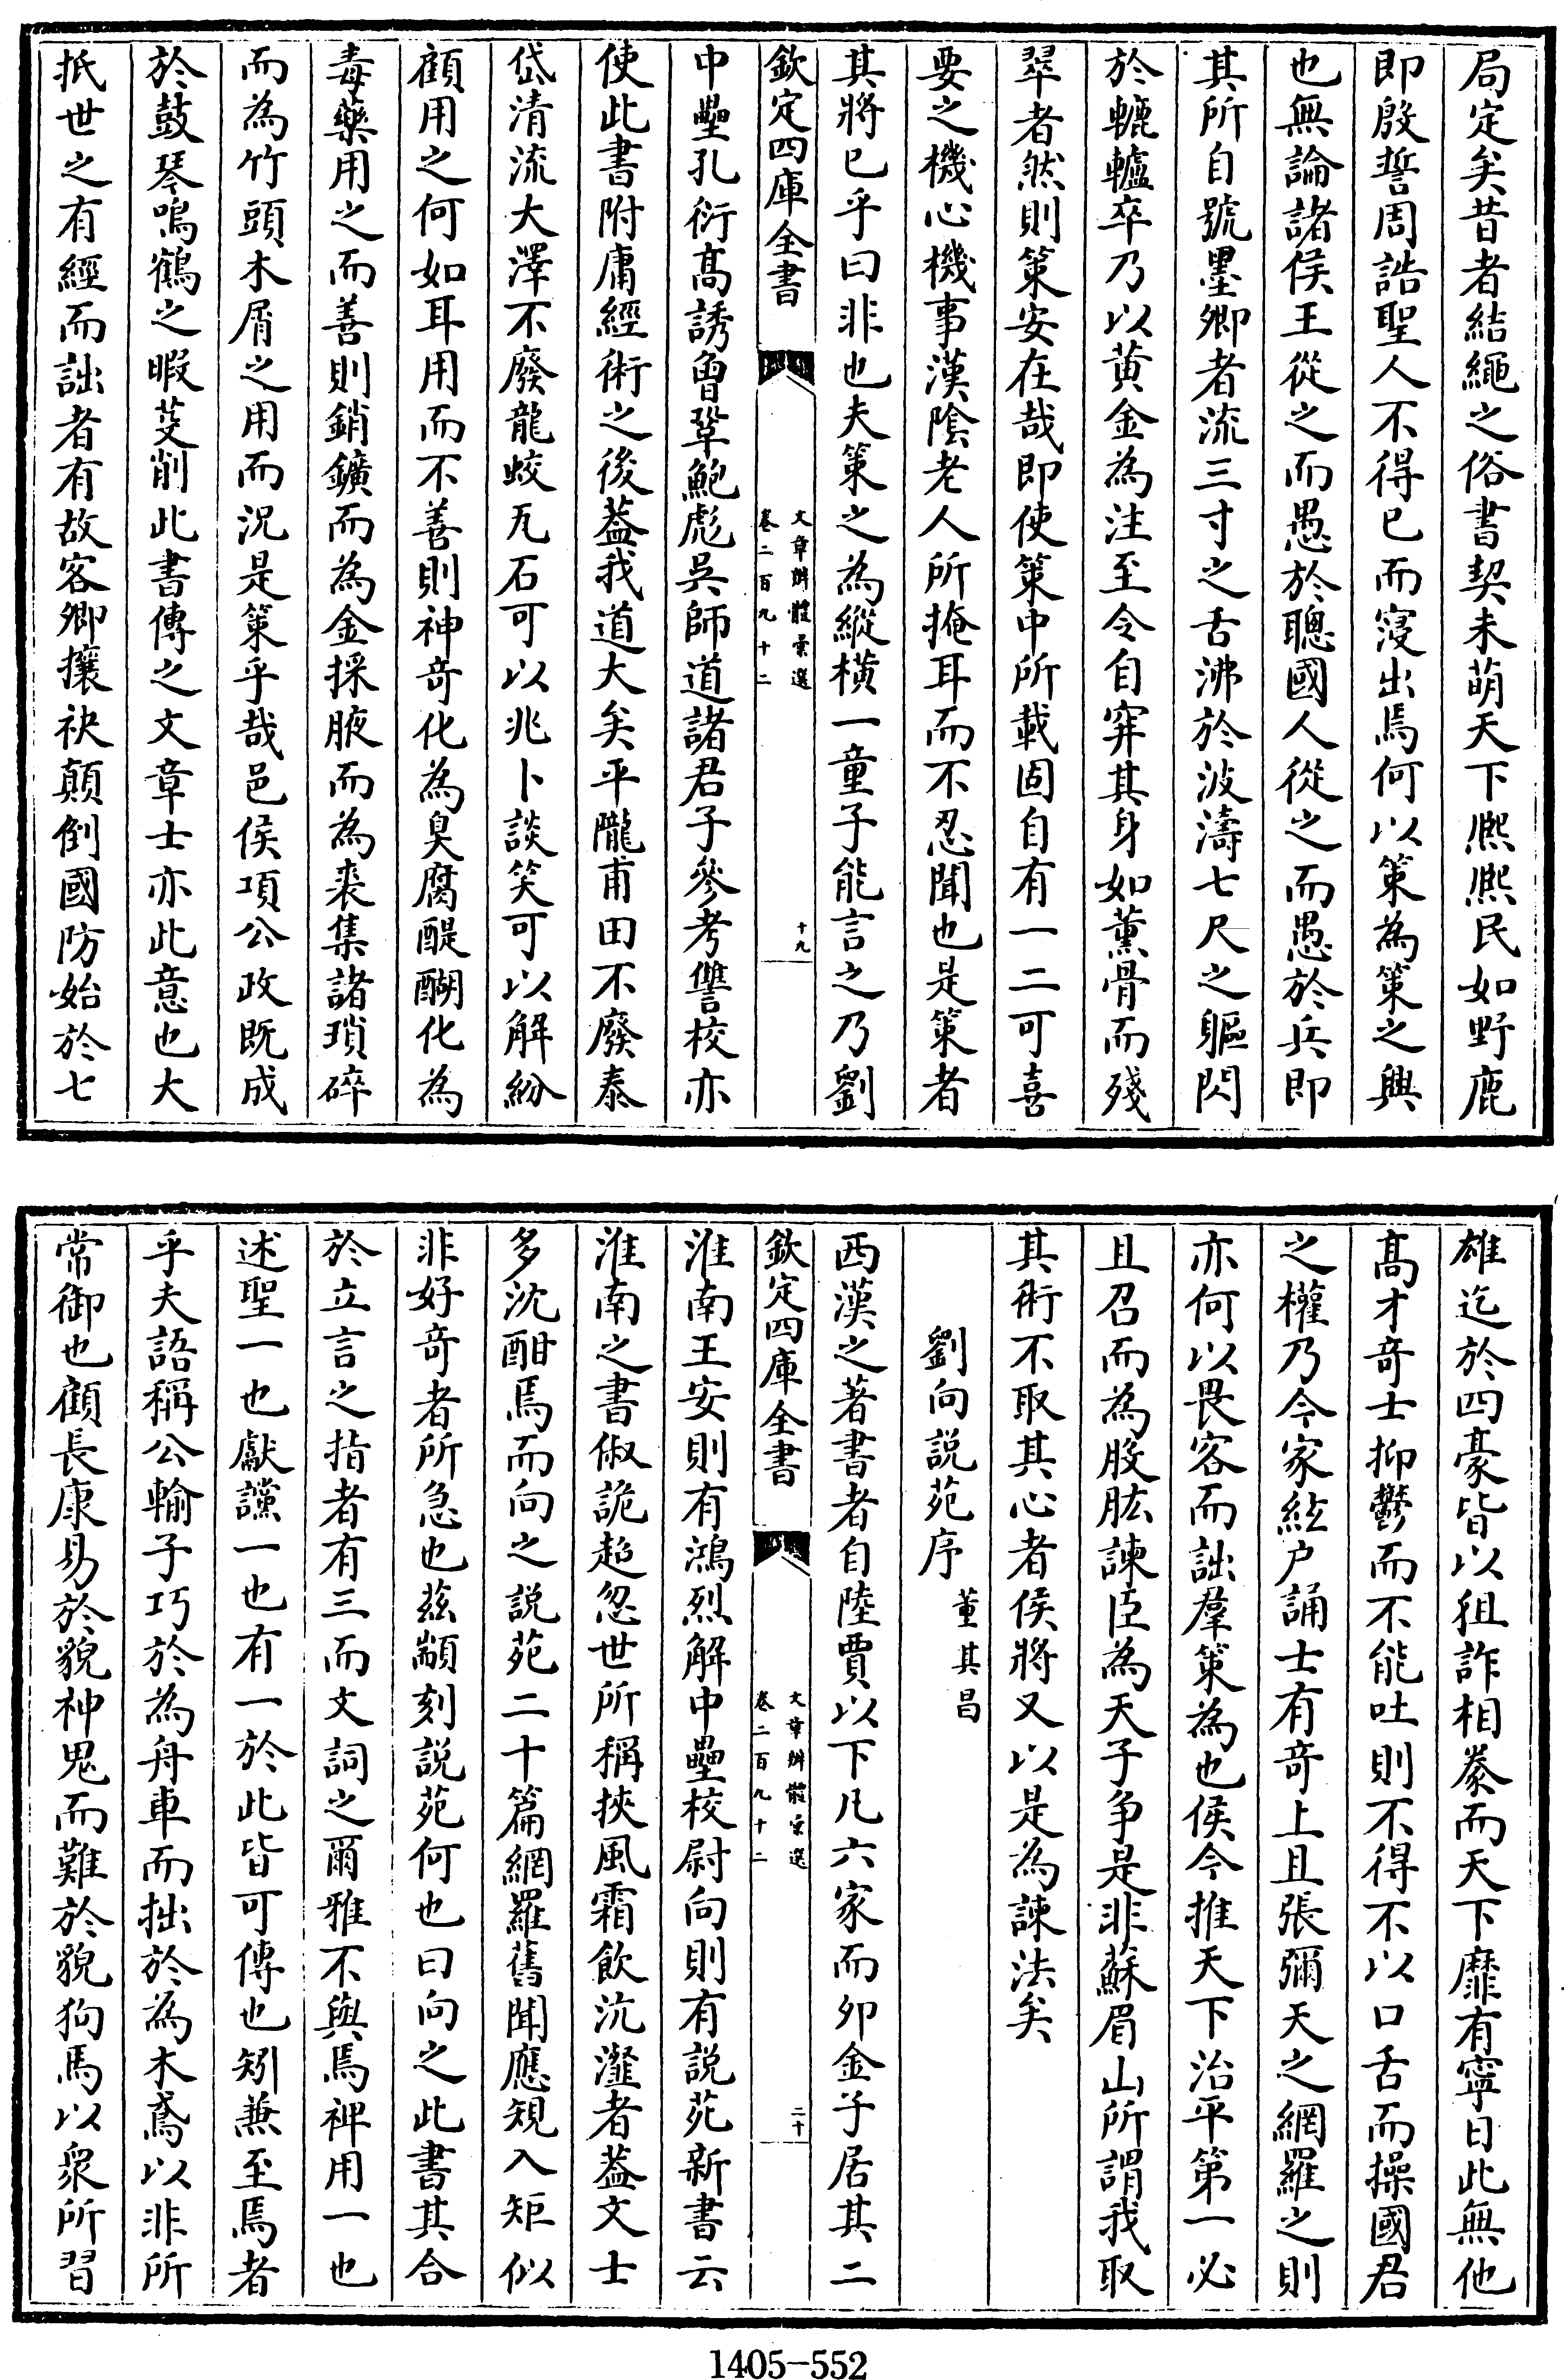 局定矣昔者結繩之俗書契未萌天下熈熈民如野鹿
即殷誓周誥聖人不得已而寖出焉何以策為策之興
也無論諸侯王從之而愚於聰國人從之而愚於兵即
其所自號墨卿者流三寸之舌沸於波濤七尺之軀閃
於轆轤卒乃以黄金為注至令自穽其身如薰骨而殘
翠者然則策安在哉即使策中所載固自有一二可喜
要之機心機事漢陰老人所掩耳而不忍聞也是策者
其將已乎曰非也夫策之為縱横一童子能言之乃劉
欽定四庫全書
文章辨體彙選
卷二百九十二
十九
中壘孔衍高誘曾鞏鮑彪吳師道諸君子參考讐校亦
使此書附庸經術之後葢我道大矣平隴甫田不廢泰
岱清流大澤不廢龍蛟瓦石可以兆卜談笑可以解紛
顧用之何如耳用而不善則神竒化為臭腐醍醐化為
毒藥用之而善則銷鑛而為金採腋而為裘集諸瑣碎
而為竹頭木屑之用而況是策乎哉邑侯項公政既成
於鼓琴鳴鶴之暇芟削此書傳之文章士亦此意也大
抵世之有經而詘者有故客卿攘袂顛倒國防始於七
雄迄於四豪皆以狙詐相豢而天下靡有寧日此無他
高才竒士抑鬱而不能吐則不得不以口舌而操國君
之權乃今家絃户誦士有竒上且張彌天之網羅之則
亦何以畏客而詘羣策為也侯今推天下治平第一必
且召而為股肱諫臣為天子争是非蘇眉山所謂我取
其術不取其心者侯將又以是為諫法矣
劉向説苑序 董其昌
西漢之著書者自陸賈以下凡六家而夘金子居其二
欽定四庫全書
文章辨體彙選
卷二百九十二
二十
淮南王安則有鴻烈解中壘校尉向則有説苑新書云
淮南之書俶詭超忽世所稱挾風霜飲沆瀣者葢文士
多沈酣焉而向之説苑二十篇網羅舊聞應規入矩似
非好竒者所急也兹顓刻説苑何也曰向之此書其合
於立言之指者有三而文詞之爾雅不與焉裨用一也
述聖一也獻讜一也有一於此皆可傳也矧兼至焉者
乎夫語稱公輸子巧於為舟車而拙於為木鳶以非所
常御也顧長康易於貌神鬼而難於貌狗馬以衆所習
1405—552